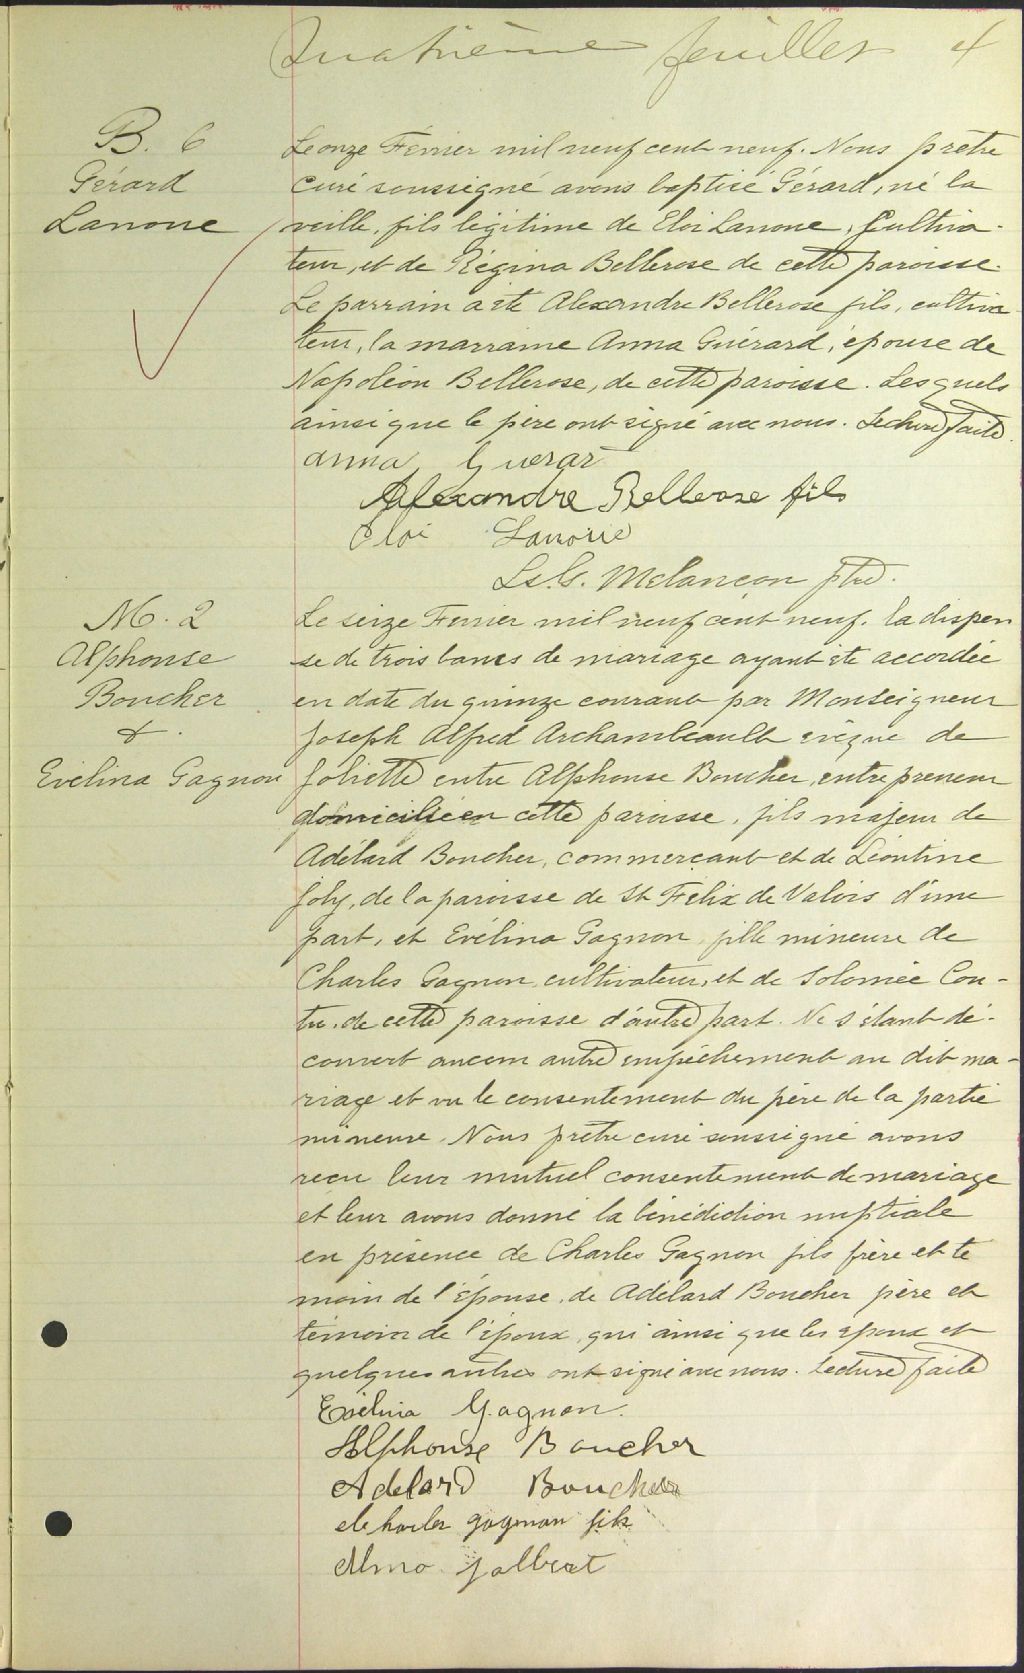 Quatrième feuillet 4
B. 6
Gérard
Lanoue
Le onze Février mil neuf cent neuf. Nous prêtre
curé soussigné avons baptisé Gérard, né la
veille, fils légitime de Eloi Lanoue, Cultiva-
teur, et de Régina Bellerose de cette paroisse.
Le parrain a été Alexandre Bellerose fils, cultiva-
teur, la marraine Anna Guérard, épouse de
Napoléon Bellerose, de cette paroisse. Lesquels
ainsi que le père ont signé avec nous. Lecture faite.
anna Guerar
Alexandre Bellerose fils
Eloi Lanoue
Ls. G. Melançon ptre.
M. 2
Alphonse
Boucher
&
Evelina Gagnon
Le seize Février mil neuf cent neuf. la dispen
se de trois bancs de mariage ayant été accordée
en date du quinze courant par Monseigneur
Joseph Alfred Archambeault évêque de
Joliette entre Alphonse Boucher, entrepreneur
domicilié en cette paroisse, fils majeur de
Adélard Boucher, commerçant et de Léontine
Joly, de la paroisse de St Félix de Valois d'une
part, et Evélina Gagnon fille mineure de
Charles Gagnon, cultivateur, et de Solomée Cou-
tu, de cette paroisse d'autre part. Ne s'étant dé-
couvert aucun autre empêchement au dit ma-
riage et vu le consentement du père de la partie
mineure. Nous prêtre curé soussigné avons
reçu leur mutuel consentement de mariage
et leur avons donné la bénédiction nuptiale
en présence de Charles Gagnon fils frère et té
moin de l'épouse, de Adélard Boucher père et
témoin de l'époux, qui ainsi que les époux et
quelques autres ont signé avec nous. Lecture faite
Evelina Gagnon.
Alphonse Boucher
Adelard Boucher
charles gagnon fils
Alma Jalbert